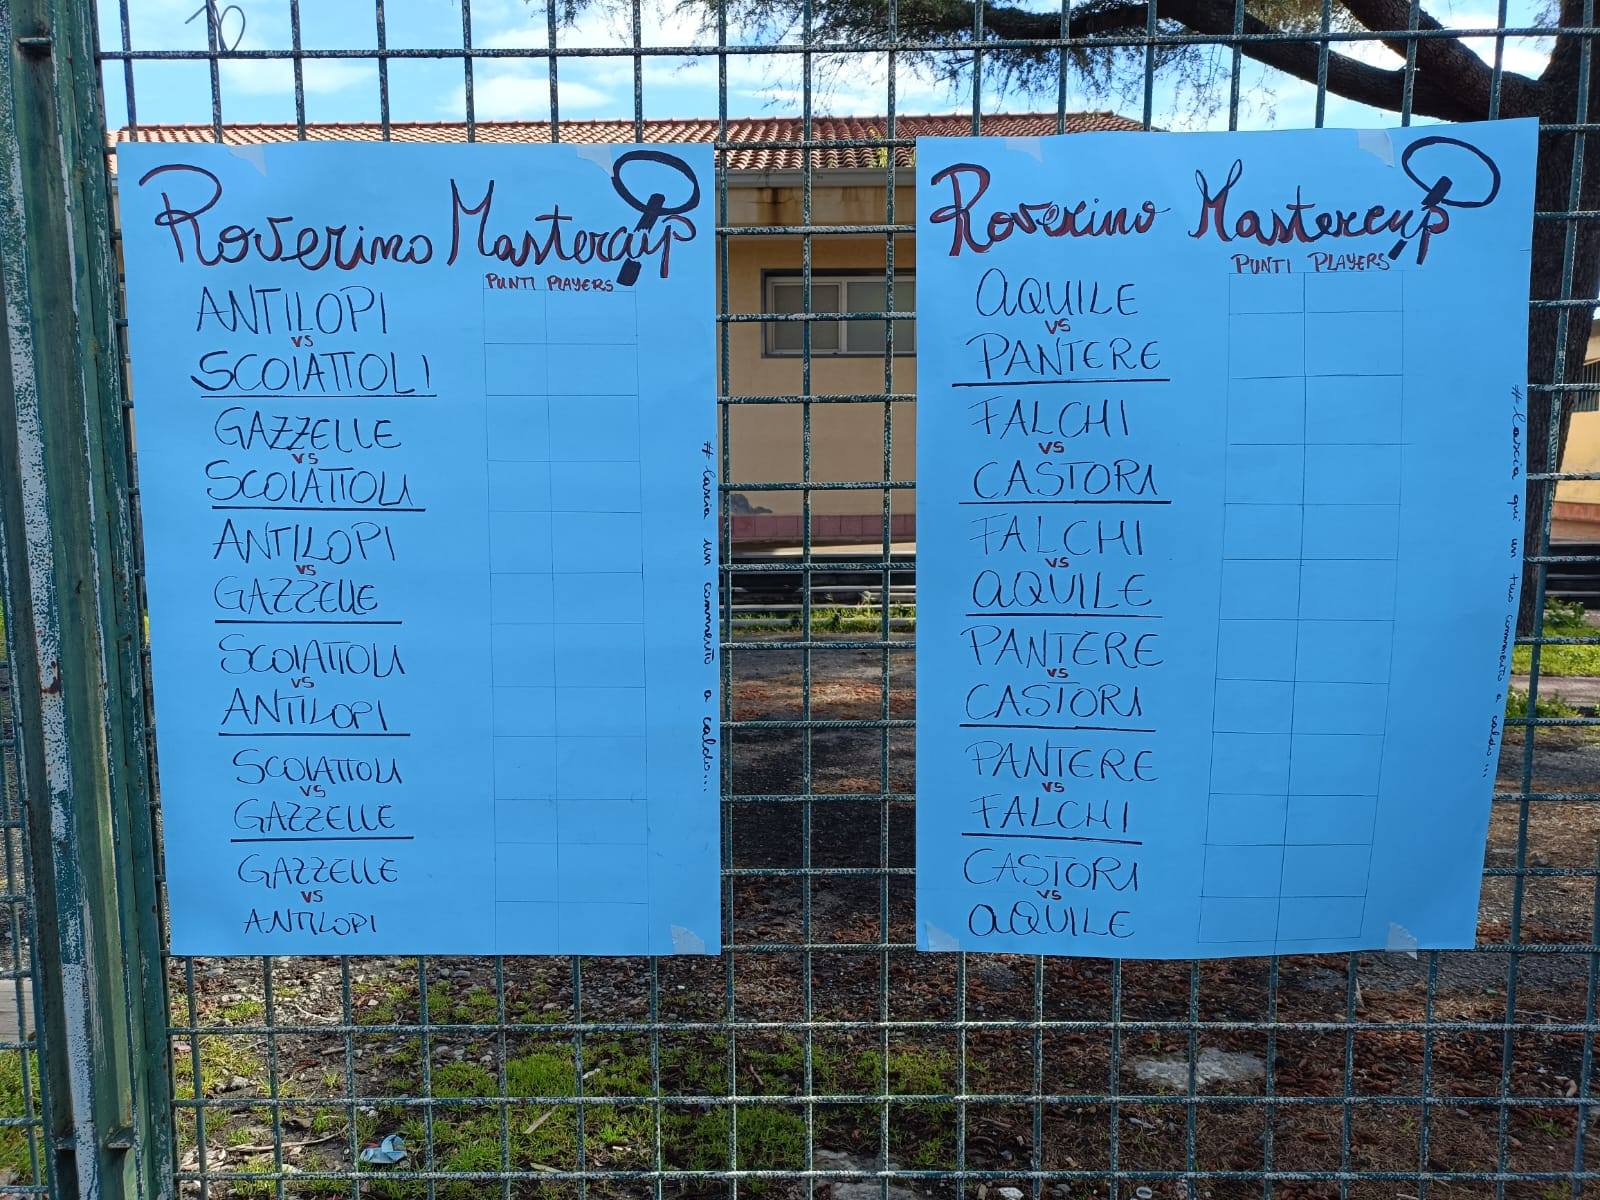 Roverino Mastercup
PUNTI PLAYERS
ANTILOPI
VS
SCOIATTOLI
GAZZELLE
VS
SCOIATTOLI
ANTILOPI
VS
GAZZELLE
SCOIATTOLI
VS
ANTILOPI
SCOIATTOLI
VS
GAZZELLE
GAZZELLE
VS
ANTILOPI
# lascia un commento a caldo...
Roverino Mastercup
PUNTI PLAYERS
AQUILE
VS
PANTERE
FALCHI
VS
CASTORI
FALCHI
VS
AQUILE
PANTERE
VS
CASTORI
PANTERE
VS
FALCHI
CASTORI
VS
AQUILE
# lascia qui un tuo commento a caldo...